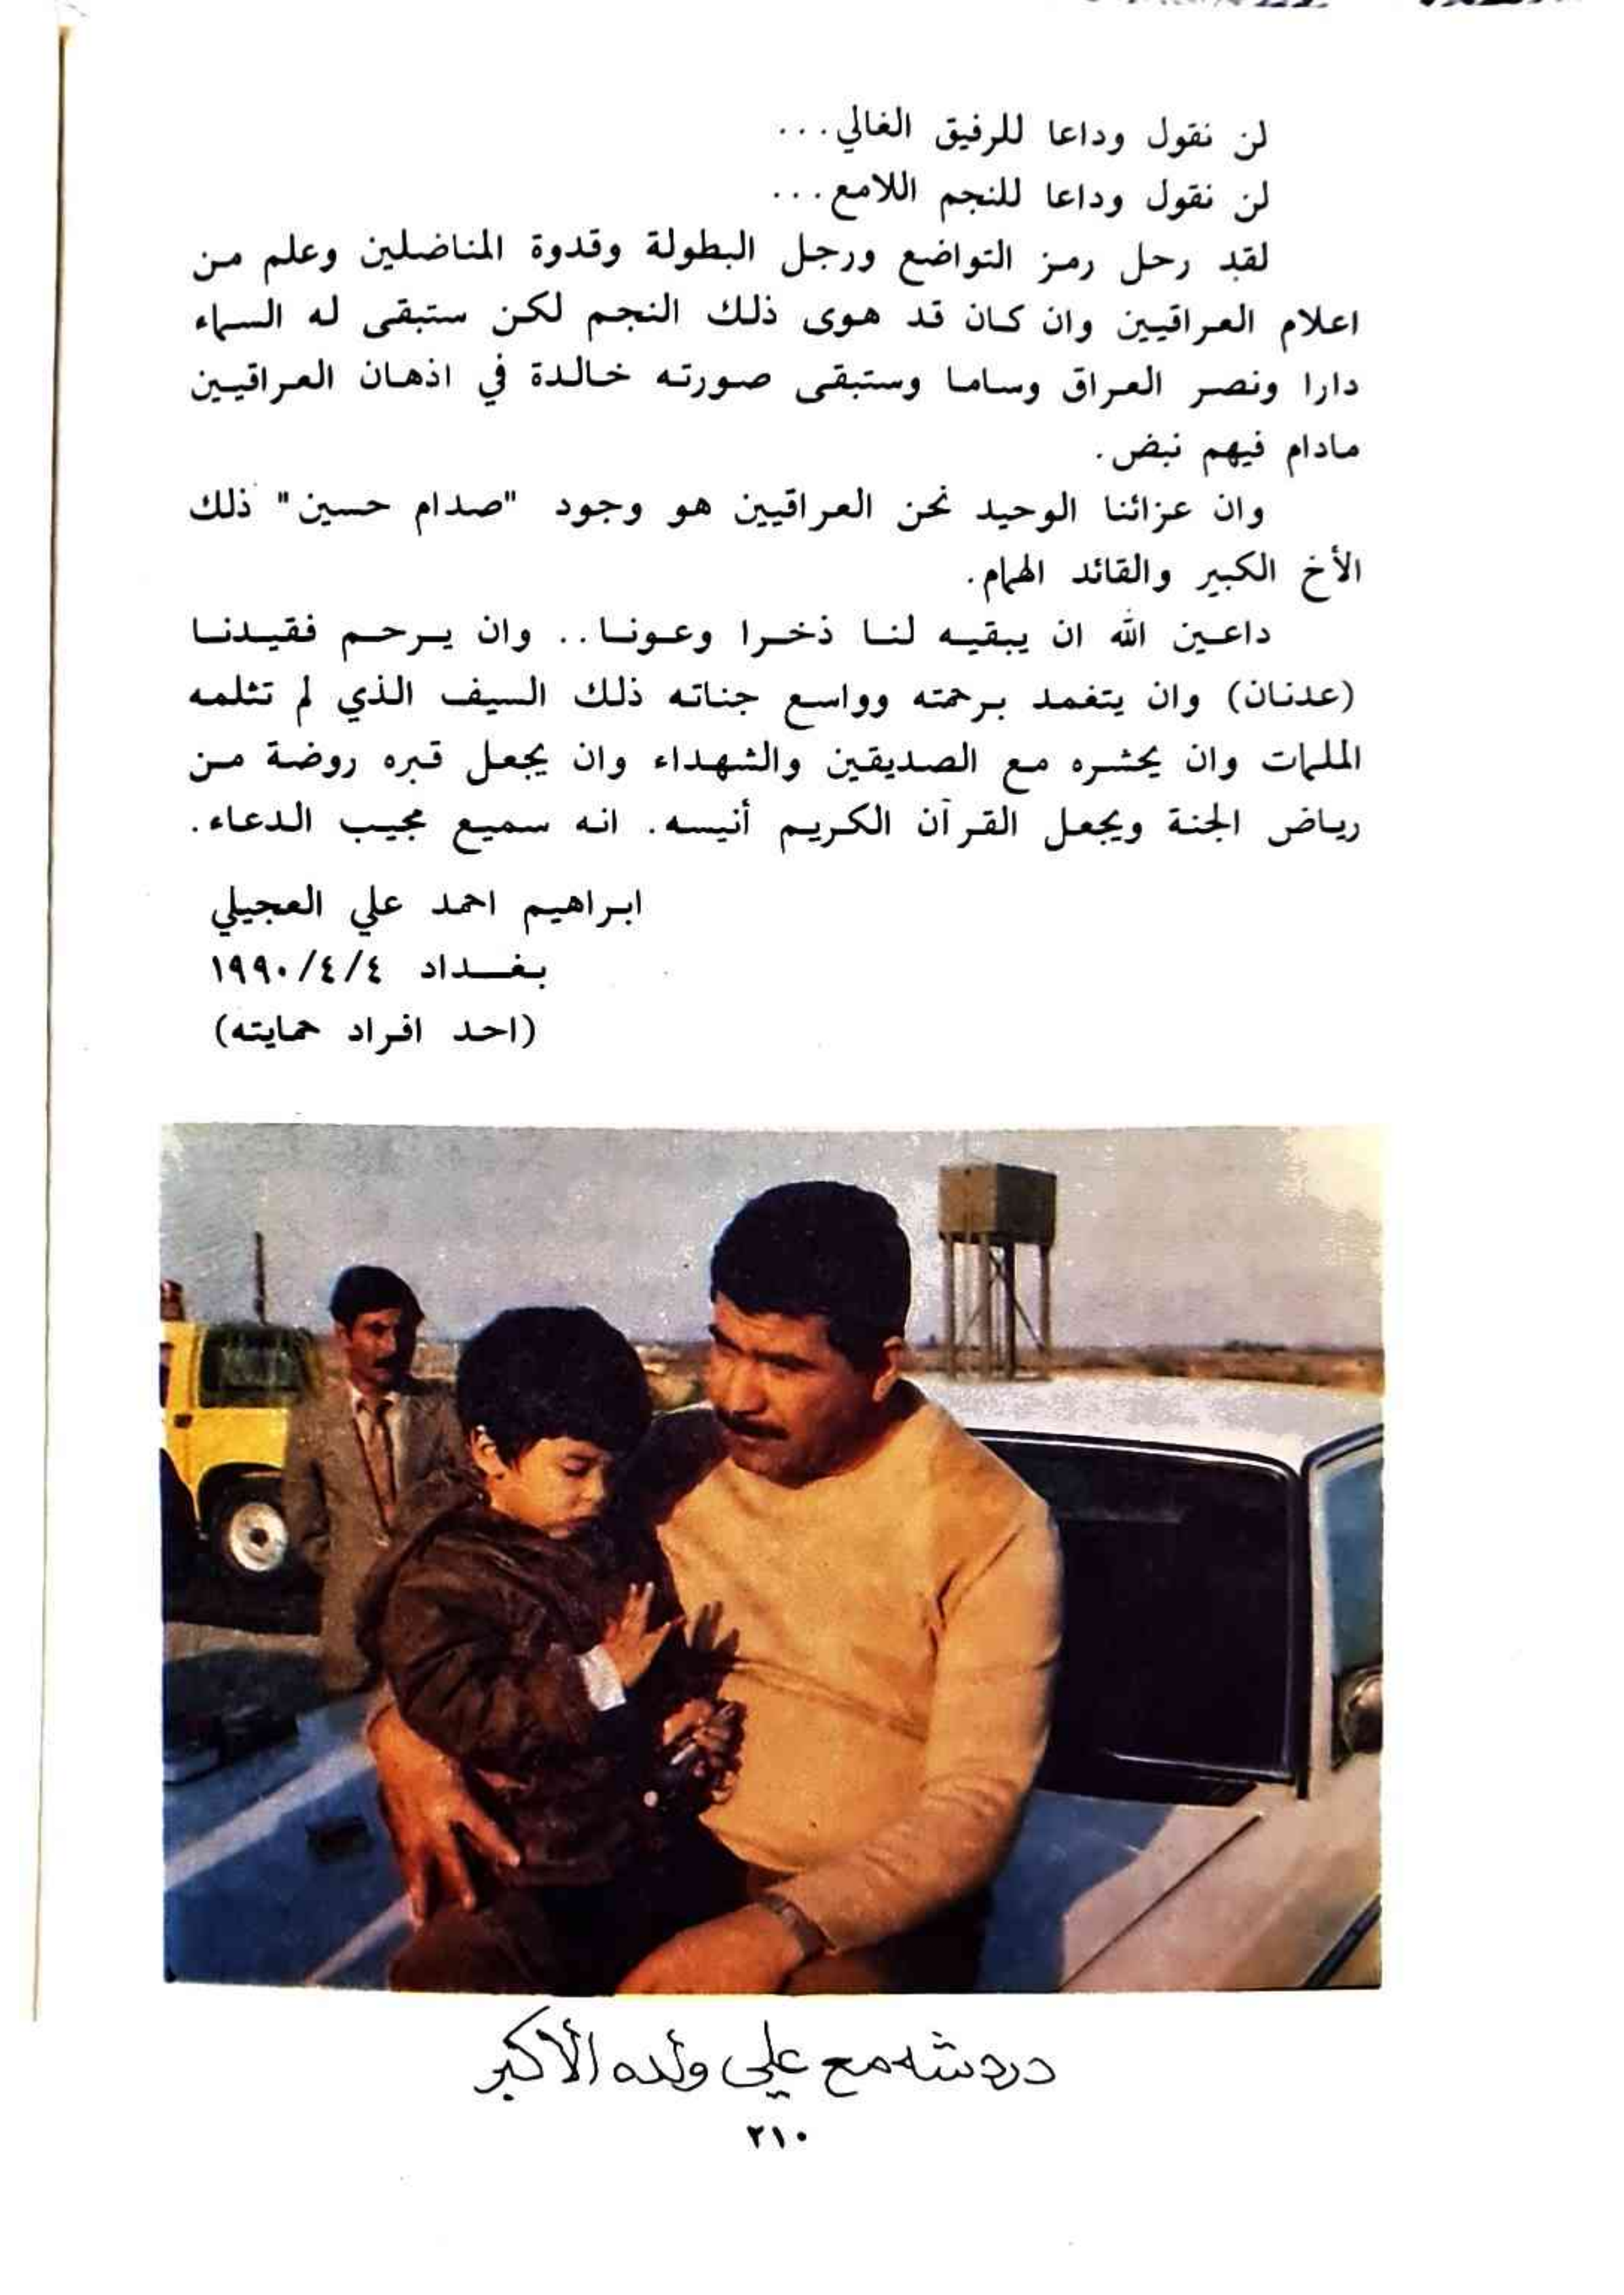 لن نقول وداعا للرفيق الغالي...
لن نقول وداعا للنجم اللامع...
لقد رحل رمز التواضع ورجل البطولة وقدوة المناضلين وعلم من
اعلام العراقيين وان كان قد هوى ذلك النجم لكن ستبقى له السماء
دارا ونصر العراق وساما وستبقى صورته خالدة في اذهان العراقيين
مادام فيهم نبض.
وان عزائنا الوحيد نحن العراقيين هو وجود "صدام حسين" ذلك
الأخ الكبير والقائد الهمام.
داعين الله ان يبقيه لنا ذخرا وعونا.. وان يرحم فقيدنا
(عدنان) وان يتغمد برحمته وواسع جناته ذلك السيف الذي لم تثلمه
الملمات وان يحشره مع الصديقين والشهداء وان يجعل قبره روضة من
رياض الجنة ويجعل القرآن الكريم أنيسه. انه سميع مجيب الدعاء.
ابراهيم احمد علي العجيلي
بغداد ١٩٩٠/٤/٤
(احد افراد حمايته)
دردشه مع علي ولده الأكبر
٢١٠